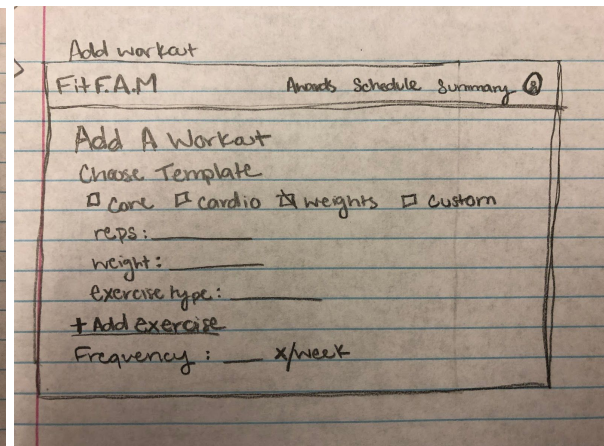 Add workout
FitF.A.M Awards Schedule Summary
Add A Workout
Choose Template
core cardio weights custom
reps:
weight:
exercise type:
+ Add exercise
Frequency: x/week